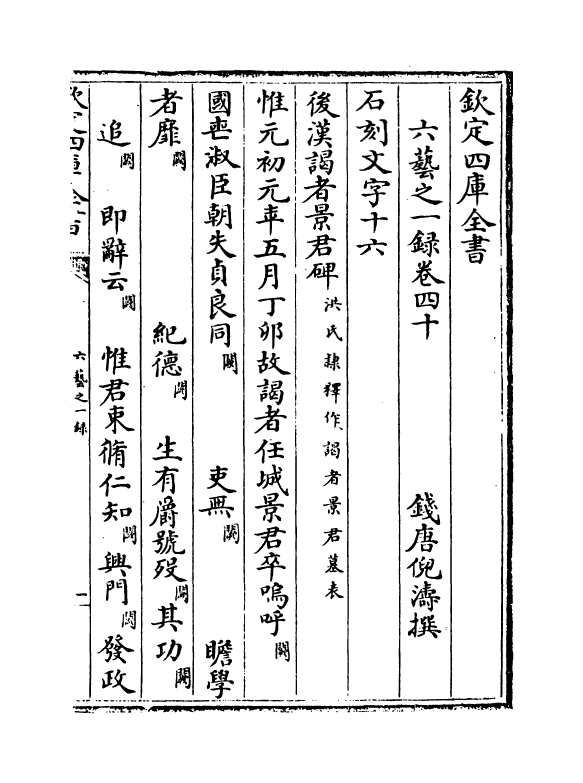 欽定四庫全書
六藝之一録卷四十
錢唐倪濤撰
石刻文字十六
後漢謁者景君碑洪氏隷釋作謁者景君墓表
惟元初元年五月丁卯故謁者任城景君卒嗚呼闕
國䘮淑臣朝失貞良同闕　吏無闕　瞻學
者靡闕　紀德闕　生有爵號殁闕其功闕
追闕　即辭云闕　惟君束脩仁知闕興門闕發政
欽定四庫全書
六藝之一録
一